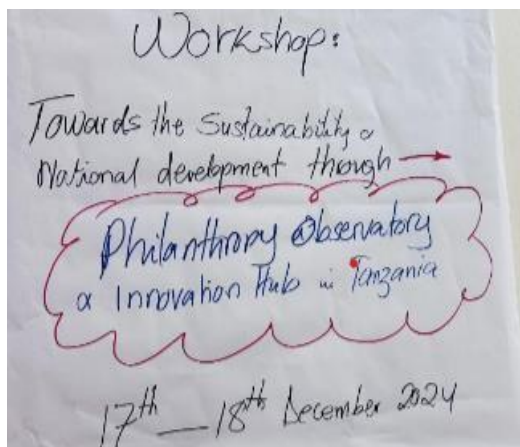 Workshop:
Towards the Sustainability &
National development through →
Philanthropy Observatory
& Innovation Hub in Tanzania
17th — 18th December 2024